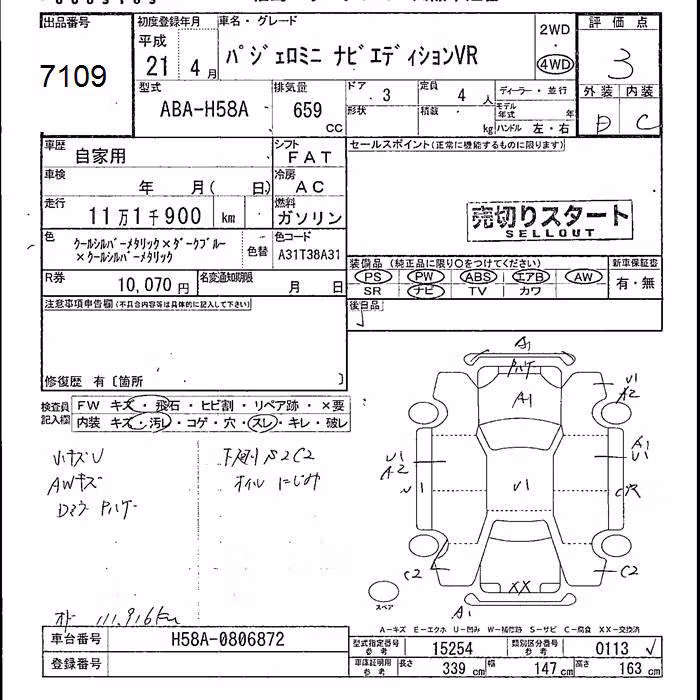 出品番号
7109
初度登録年月
平成
21 4月
車名・グレード
パジェロミニ ナビエディションVR
2WD
4WD
評価点
3
外装 内装
D C
型式
ABA-H58A
排気量
659
CC
ドア 3
形状
定員 4 人
積載 kg
ディーラー・並行
モデル年式 年
ハンドル 左・右
車歴
自家用
シフト
FAT
セールスポイント(正常に機能するものに限ります)
車検
年 月( 日)
冷房
AC
走行
11万1千900 km
燃料
ガソリン
売切りスタート
SELLOUT
色
クールシルバーメタリック×ダークブルー
×クールシルバーメタリック
色替
色コード
A31T38A31
装備品(純正品に限り○をつけてください)
PS PW ABS エアB AW
SR ナビ TV カワ
新車保証書
有・無
R券
10,070 円
名変通知期限
月 日
後日品
注意事項申告欄(不具合内容等は具体的に記入して下さい)
修復歴 有〔箇所 〕
検査員記入欄
FW キズ・飛石・ヒビ割・リペア跡・×要
内装 キズ・汚レ・コゲ・穴・スレ・キレ・破レ
小キズU
AWキズ
下廻りS2C2
オイルにじみ
A1
A1
V1
A2
U1
A2
A1
U1
V1
V1
C2
C2
XX
A1
スペア
オド 111,916km
A-キズ E-エクボ U-凹み W-補修跡 S-サビ C-腐食 XX-交換済
車台番号
H58A-0806872
登録番号
型式指定番号 参考
15254
類別区分番号 参考
0113
車庫証明用 参考
長さ 339 cm
幅 147 cm
高さ 163 cm